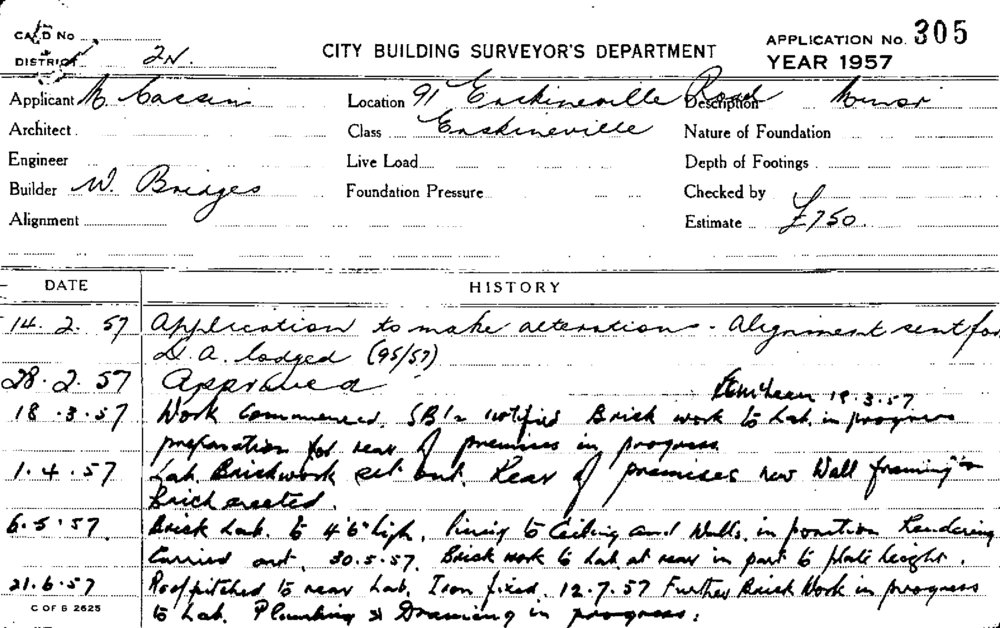 CARD No
DISTRICT 2N.
CITY BUILDING SURVEYOR'S DEPARTMENT
APPLICATION No. 305
YEAR 1957
Applicant M. Cassin Location 91 Erskineville Road Description Minor
Architect Class Erskineville Nature of Foundation
Engineer Live Load Depth of Footings
Builder W. Bridges Foundation Pressure Checked by
Alignment Estimate £750.
DATE HISTORY
14.2.57 Application to make alterations - Alignment sent for
D.A. lodged (95/57)
28.2.57 Approved
18.3.57
18.3.57 Work Commenced, notified Brick work to Lab. in progress
preparation for rear of premises in progress
1.4.57 Lab. Brickwork set out. Rear of premises new Wall framing &
Brick erected.
6.5.57 Brick Lab. to 4'6" high, lining to Ceiling and Walls in position Rendering
carried out, 30.5.57. Brick work to Lab at rear in part to plate height.
21.6.57 Roof pitched to rear Lab, Iron fixed, 12.7.57 Further Brick Work in progress
to Lab. Plumbing & Draining in progress.
C OF S 2625